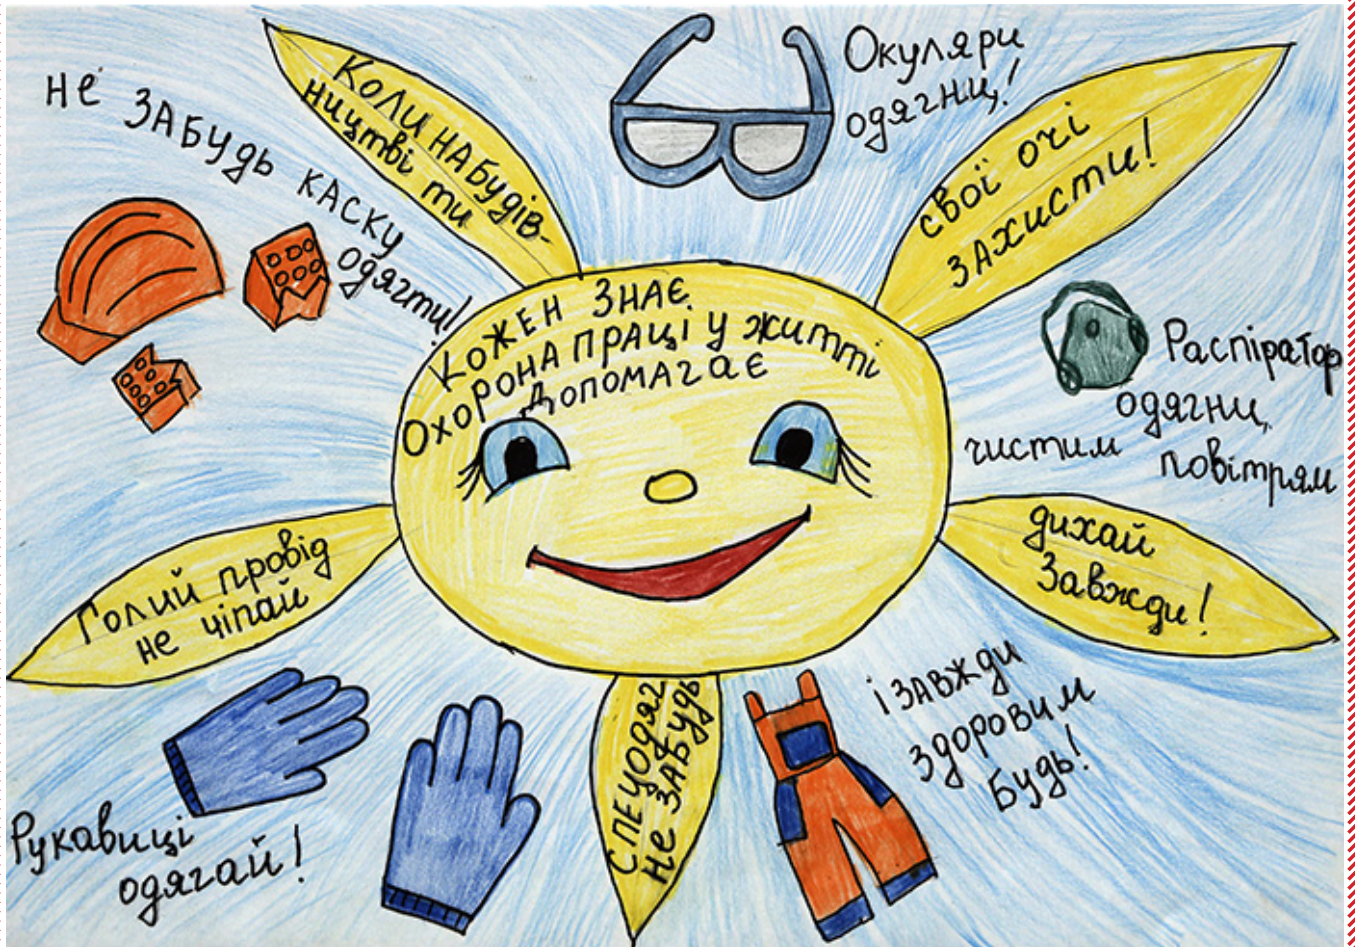 Кожен знає
Охорона праці у житті
допомагає
Коли на будів-
ництві ти
не забудь каску
одягти!
Окуляри
одягни!
свої очі
захисти!
Распіратор
одягни,
чистим повітрям
дихай
завжди!
Голий провід
не чіпай
Рукавиці
одягай!
Спецодяг
не забудь
і завжди
здоровим
будь!